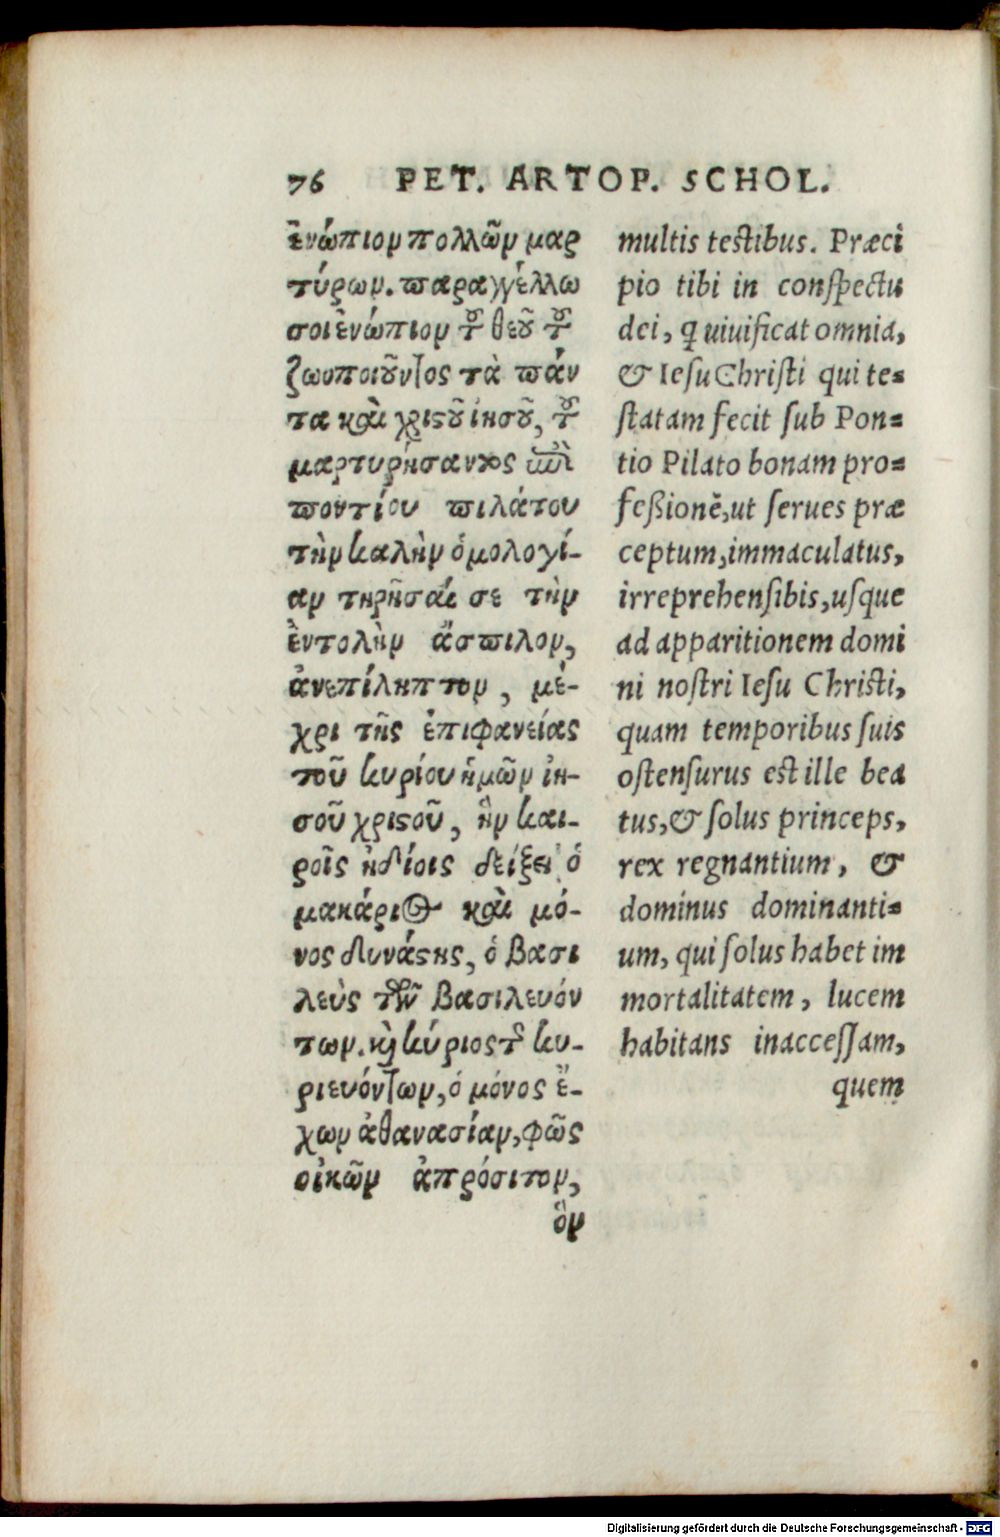 76 PET. ARTOP. SCHOL.
ἐνώπιον πολλῶν μαρ
τύρων. παραγγέλλω
σοι ἐνώπιον τοῦ θεοῦ τοῦ
ζωοποιοῦντος τὰ πάν
τα καὶ χριστοῦ ἰησοῦ, τοῦ
μαρτυρήσαντος ἐπὶ
ποντίου πιλάτου
τὴν καλὴν ὁμολογί-
αν τηρῆσαί σε τὴν
ἐντολὴν ἄσπιλον,
ἀνεπίληπτον, μέ-
χρι τῆς ἐπιφανείας
τοῦ κυρίου ἡμῶν ἰη-
σοῦ χριστοῦ, ἣν και-
ροῖς ἠδίοις δείξει ὁ
μακάριος καὶ μό-
νος δυνάστης, ὁ βασι
λεὺς τῶν βασιλευόν
των. καὶ κύριος τῶν κυ-
ριευόντων, ὁ μόνος ἔ-
χων ἀθανασίαν, φῶς
οἰκῶν ἀπρόσιτον,
ὃν
multis testibus. Præci
pio tibi in conspectu
dei, q uiuificat omnia,
& Iesu Christi qui te-
statam fecit sub Pon-
tio Pilato bonam pro-
feßionẽ, ut serues præ
ceptum, immaculatus,
irreprehensibis, usque
ad apparitionem domi
ni nostri Iesu Christi,
quam temporibus suis
ostensurus est ille bea
tus, & solus princeps,
rex regnantium, &
dominus dominanti-
um, qui solus habet im
mortalitatem, lucem
habitans inaccessam,
quem
Digitalisierung gefördert durch die Deutsche Forschungsgemeinschaft - DFG